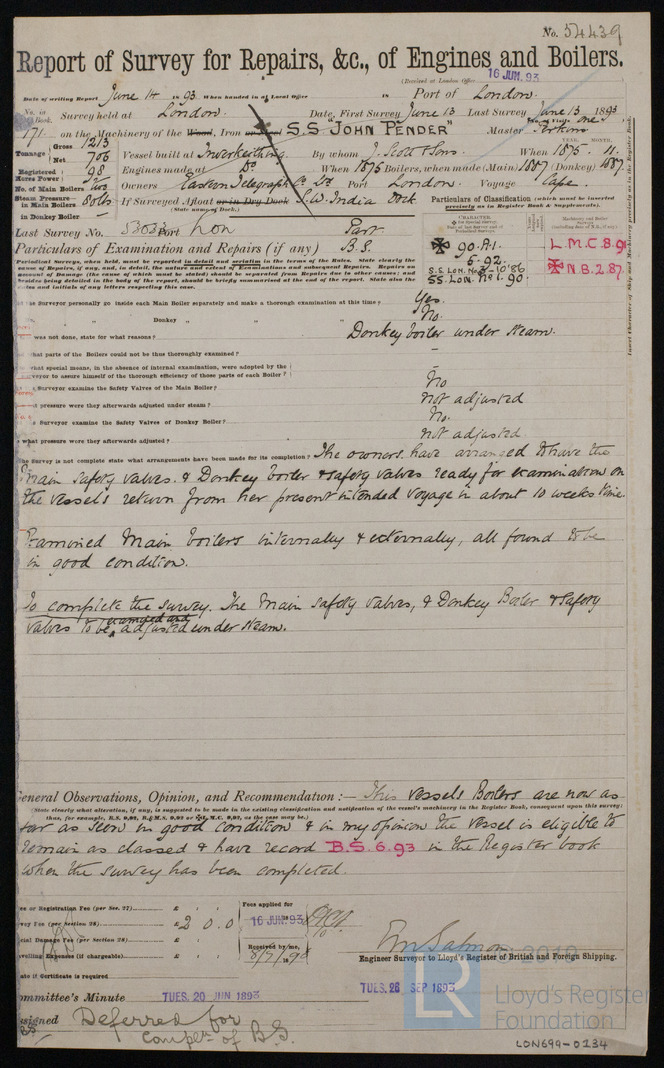 No. 54439
Report of Survey for Repairs, &c., of Engines and Boilers.
(Received at London Office 16 JUN. 93
Date of writing Report June 14 1893. When handed in at Local Office 18 Port of London.
No. in Book. Survey held at London. Date, First Survey June 13 Last Survey June 13 1893
171. on the Machinery of the Wood, Iron or Steel S.S "JOHN PENDER" Master
Tonnage Gross 1213 Net 706 Vessel built at Inverkeithing By whom J. Scott & Sons. When 1875. 11.
Registered Horse Power 98 Engines made at Do When 1875 Boilers, when made (Main) 1887 (Donkey) 1887
No. of Main Boilers two Owners Eastern Telegraph Co. Ld Port London. Voyage Cape.
Steam Pressure in Main Boilers 80 lbs If Surveyed Afloat or in Dry Dock S.W. India Dock
in Donkey Boiler — (State name of Dock.)
Particulars of Classification (which must be inserted precisely as in Register Book & Supplements).
Last Survey No. Port Lon Part
Particulars of Examination and Repairs (if any) B.S.
90.A.1.
5.92.
S.S. LON. No 3-10'86
S.S. LON. No 1. 90.
L.M.C 8.91
N.B. 2.87
the Surveyor personally go inside each Main Boiler separately and make a thorough examination at this time? Yes.
" Donkey " " " No.
was not done, state for what reasons? Donkey boiler under steam.
what parts of the Boilers could not be thoroughly examined? —
what special means, in the absence of internal examination, were adopted by the
Surveyor to assure himself of the thorough efficiency of those parts of each Boiler?
Surveyor examine the Safety Valves of the Main Boiler? No
pressure were they afterwards adjusted under steam? not adjusted
Surveyor examine the Safety Valves of Donkey Boiler? No.
what pressure were they afterwards adjusted? not adjusted
the Survey is not complete state what arrangements have been made for its completion? The owners have arranged to have the
Main safety valves. & Donkey boiler & safety valves ready for examination on
the vessel's return from her present intended voyage in about 10 weeks time.
Examined Main boilers internally & externally, all found to be
in good condition.
To complete the survey. The Main safety valves, & Donkey Boiler & Safety
valves to be examined and adjusted under steam.
General Observations, Opinion, and Recommendation:— This vessels Boilers are now as
(State clearly what alteration, if any, is suggested to be made in the existing classification and notification of the vessel's machinery in the Register Book, consequent upon this survey;
far as seen in good condition & in my opinion the vessel is eligible to
remain as classed & have record B.S. 6.93 in the Register book
when the survey has been completed.
or Registration Fee (per Sec. 27) £
Survey Fee (per Section 28) £ 2 0 . 0
Special Damage Fee (per Section 28) £
Travelling Expenses (if chargeable) £
Fees applied for
16 JUN. 93
Received by me,
E M Salmon
Engineer Surveyor to Lloyd's Register of British and Foreign Shipping.
State if Certificate is required
Committee's Minute TUES. 20 JUN 1893 TUES. 26 SEP 1893
Assigned Deferred for
Compln of B.S.
© 2019
LR
Lloyd's Register
Foundation
LON699-0234